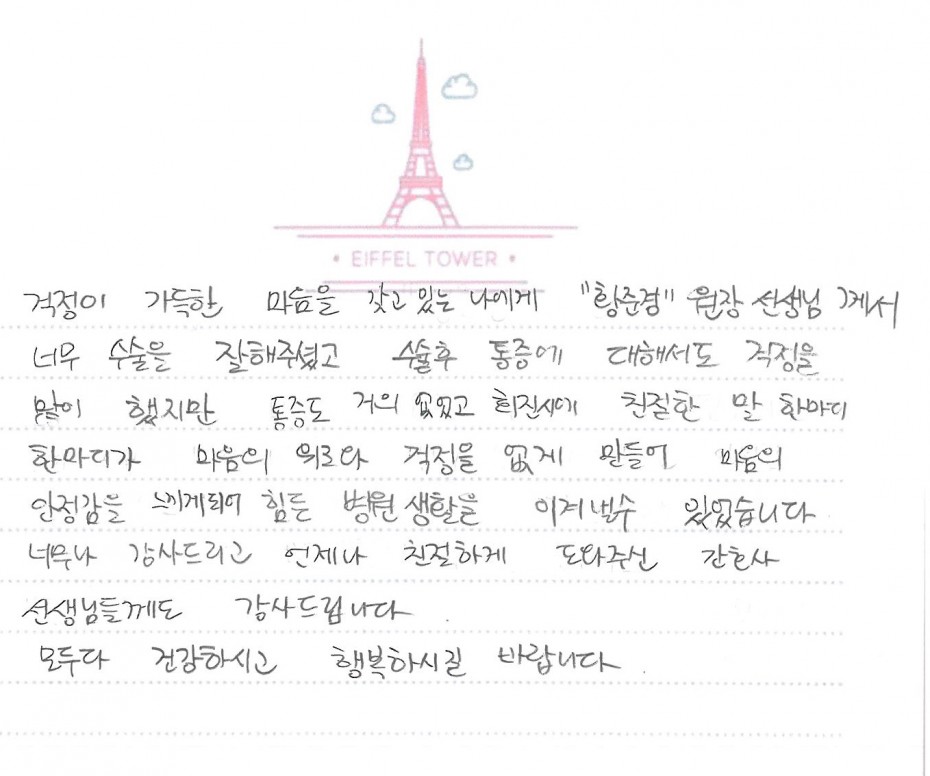 • EIFFEL TOWER •
걱정이 가득한 마음을 갖고 있는 나에게 "황준경" 원장 선생님 께서
너무 수술을 잘해주셨고 수술후 통증에 대해서도 걱정을
많이 했지만 통증도 거의 없었고 회진시에 친절한 말 한마디
한마디가 마음의 위로와 걱정을 없게 만들어 마음의
안정감을 느끼게되어 힘든 병원 생활을 이겨낼수 있었습니다
너무나 감사드리고 언제나 친절하게 도와주신 간호사
선생님들께도 감사드립니다
모두다 건강하시고 행복하시길 바랍니다.